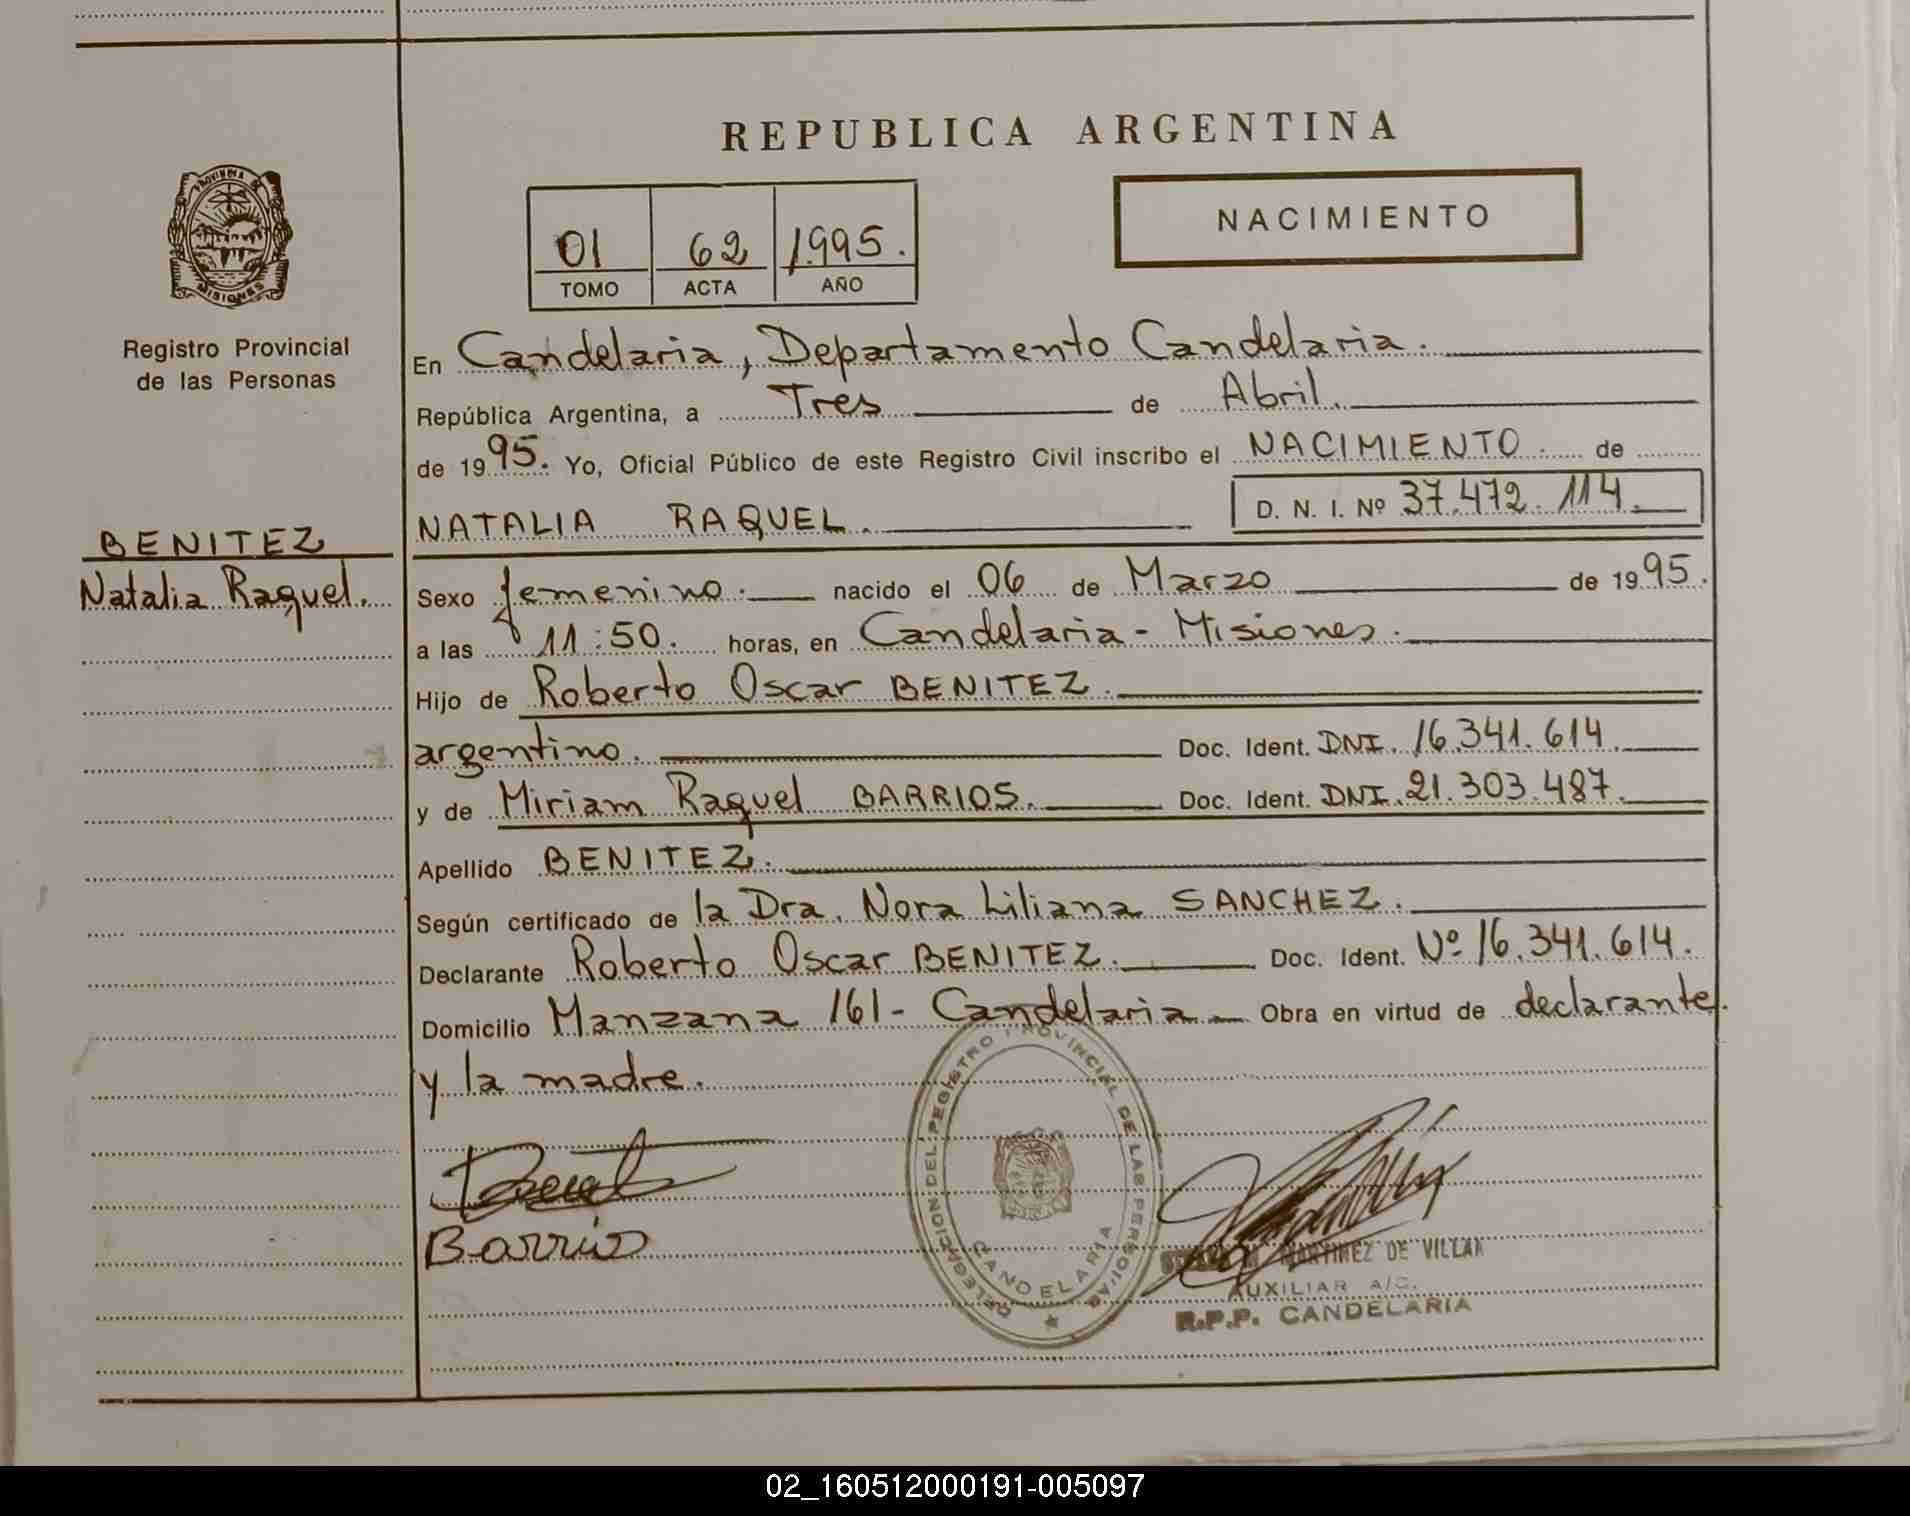 REPUBLICA ARGENTINA
PROVINCIA DE
MISIONES
Registro Provincial
de las Personas
01 62 1.995.
TOMO ACTA AÑO
NACIMIENTO
En Candelaria, Departamento Candelaria.
República Argentina, a Tres de Abril.
de 1995. Yo, Oficial Público de este Registro Civil inscribo el NACIMIENTO. de
NATALIA RAQUEL. D. N. I. Nº 37.472.114.
BENITEZ
Natalia Raquel.
Sexo femenino. nacido el 06 de Marzo de 1995.
a las 11:50. horas, en Candelaria - Misiones.
Hijo de Roberto Oscar BENITEZ.
argentino. Doc. Ident. DNI. 16.341.614.
y de Miriam Raquel BARRIOS. Doc. Ident. DNI. 21.303.487.
Apellido BENITEZ.
Según certificado de la Dra. Nora Liliana SANCHEZ.
Declarante Roberto Oscar BENITEZ. Doc. Ident. Nº 16.341.614.
Domicilio Manzana 161 - Candelaria Obra en virtud de declarante
y la madre.
DELEGACION DEL REGISTRO PROVINCIAL DE LAS PERSONAS
CANDELARIA
Barrios
MARTINEZ DE VILLAR
AUXILIAR A/C.
R.P.P. CANDELARIA
02_160512000191-005097